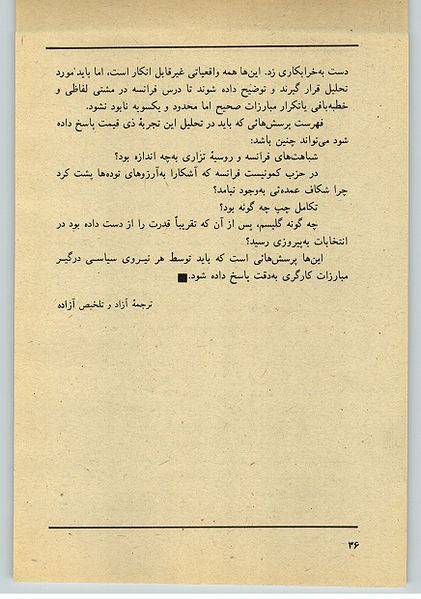 دست به‌خرابکاری زد. این‌ها همه واقعیاتی غیرقابل انکار است، اما باید مورد
تحلیل قرار گیرند و توضیح داده شوند تا درس فرانسه در مشتی لفاظی و
خطبه‌بافی یاتکرار مبارزات صحیح اما محدود و یکسویه نابود نشود.
فهرست پرسش‌هائی که باید در تحلیل این تجربهٔ ذی قیمت پاسخ داده
شود می‌تواند چنین باشد:
شباهت‌های فرانسه و روسیهٔ تزاری به‌چه اندازه بود؟
در حزب کمونیست فرانسه که آشکارا به‌آرزوهای توده‌ها پشت کرد
چرا شکاف عمده‌ئی به‌وجود نیامد؟
تکامل چپ چه گونه بود؟
چه گونه گلیسم، پس از آن که تقریباً قدرت را از دست داده بود در
انتخابات به‌پیروزی رسید؟
این‌ها پرسش‌هائی است که باید توسط هر نیروی سیاسی درگیر
مبارزات کارگری به‌دقت پاسخ داده شود.■
ترجمهٔ آزاد و تلخیص آزاده
۳۶